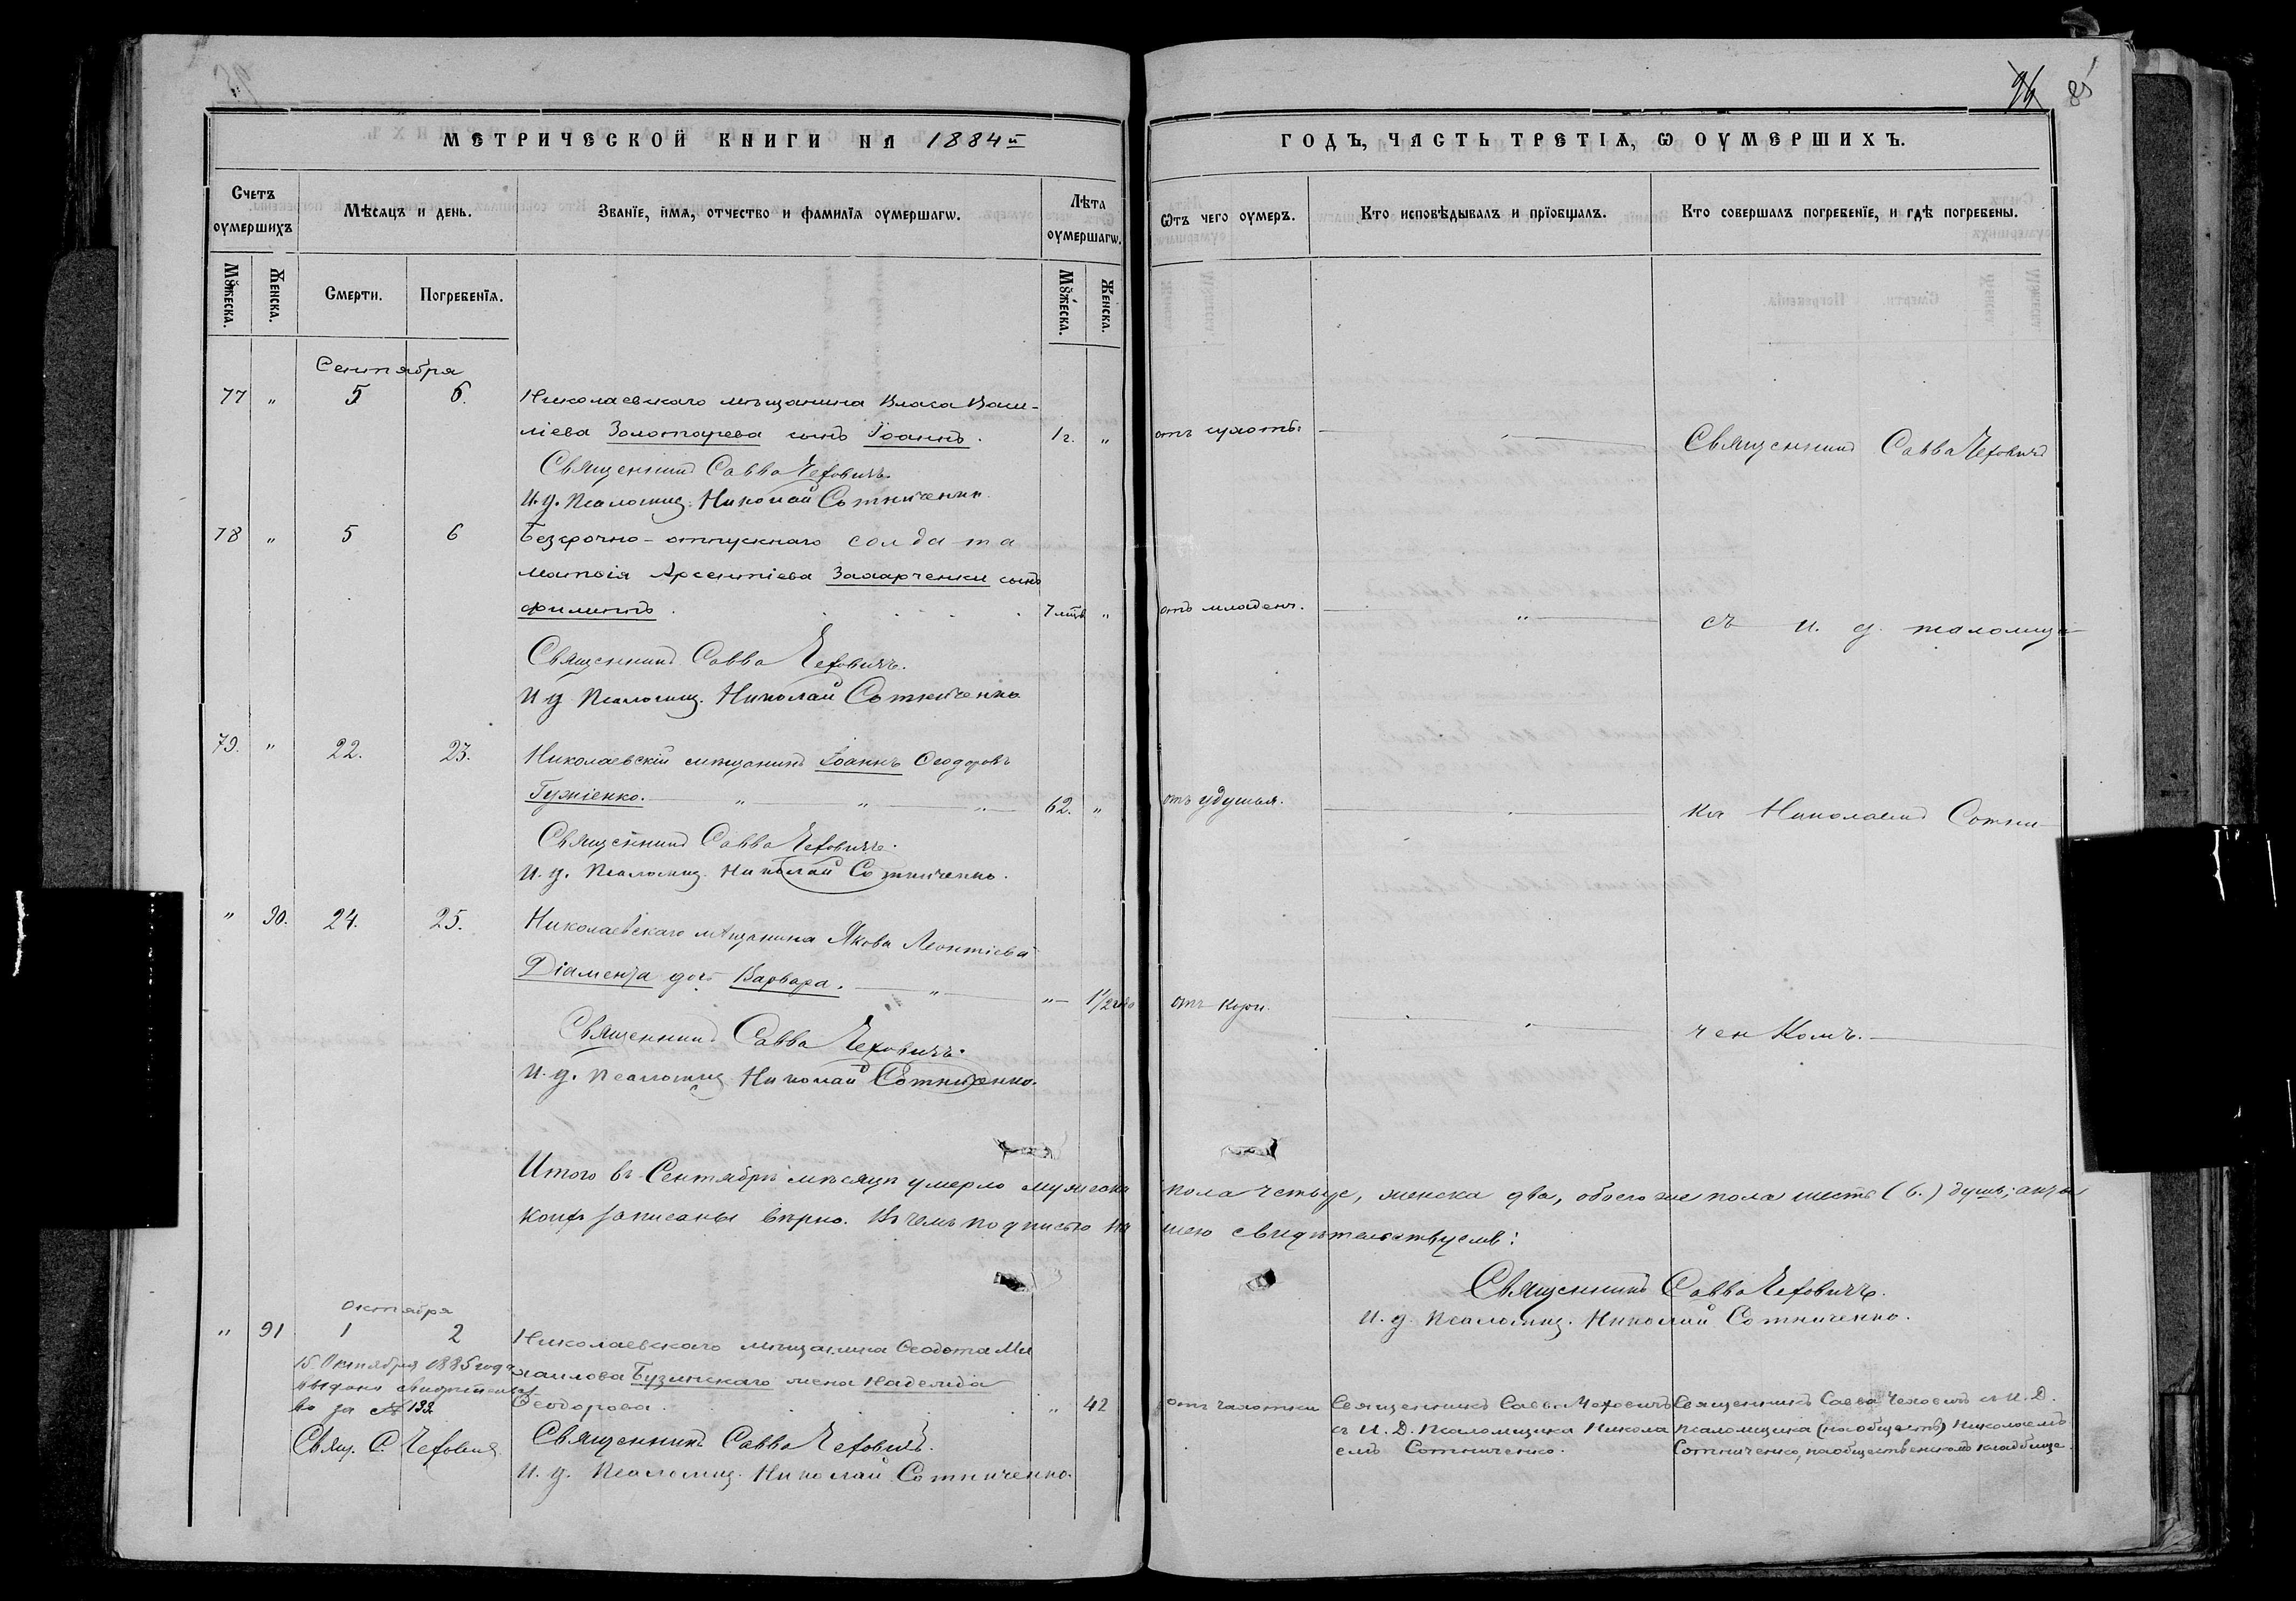 96 85
МЕТРИЧЕСКОЙ КНИГИ НА 1884й
ГОДЪ, ЧАСТЬ ТРЕТІѦ, Ѡ ОУМЕРШИХЪ.
Счетъ оумершихъ
Мѣсяцъ и день.
Званіе, имя, отчество и фамилія оумершагѡ.
Лѣта оумершагѡ.
Ѿтъ чего оумеръ.
Кто исповѣдывалъ и пріобщалъ.
Кто совершалъ погребеніе, и гдѣ погребены.
Мꙋжеска. Женска. Смерти. Погребенія. Мꙋжеска. Женска.
Сентября
77 " 5 6. Николаевскаго мѣщанина Власа Васи-
ліева Золотарева сынъ Іоаннъ. 1 г. " отъ сухоты Священникъ Савва Чеховичъ
Священникъ Савва Чеховичъ.
И. д. Псаломщ. Николай Сотниченко
78 " 5 6 Безсрочно-отпускнаго солдата
Матѳія Арсентіева Захарченки сынъ
Филиппъ. 7 мѣ "  отъ младенч. " съ и. д. псаломщи-
Священникъ Савва Чеховичъ.
И д Псаломщ. Николай Сотниченко
79. " 22. 23. Николаевскій мѣщанинъ Іоаннъ Ѳеодоровъ
Гужіенко. " " " 62. " отъ удушья. ка Николаемъ Сотни-
Священникъ Савва Чеховичъ.
И. д. Псаломщ. Николай Сотниченко.
" 90. 24. 25. Николаевскаго мѣщанина Якова Леонтіева
Діамента дочь Варвара. " " 1/2 года отъ кори. ченкомъ.
Священникъ Савва Чеховичъ.
И. д. Псаломщ Николай Сотниченко.
Итого въ Сентябрѣ мѣсяцѣ умерло мужеска пола четыре, женска два, обоего же пола шесть (6.) душъ; акты
коихъ записаны вѣрно. Въ чемъ подписью нашею свидѣтельствуемъ:
Священникъ Савва Чеховичъ.
И. д. Псаломщ. Николай Сотниченко.
Октября
" 91 1 2 Николаевскаго мѣщанина Ѳеодота Ми
хаилова Бузинскаго жена Надежда
Ѳеодорова. " 42 отъ чахотки
15 Октября 1885 года
выдано свидѣтельст
во за № 133.
Свящ. С. Чеховичъ
Священникъ Савва Чеховичъ
съ И. Д. Псаломщика Никола
емъ Сотниченко.
Священникъ Савва Чеховичъ съ И. Д.
Псаломщика Николаемъ
Сотниченко, на общественномъ кладбище.
Священникъ Савва Чеховичъ.
И. д. Псаломщ. Николай Сотниченко.